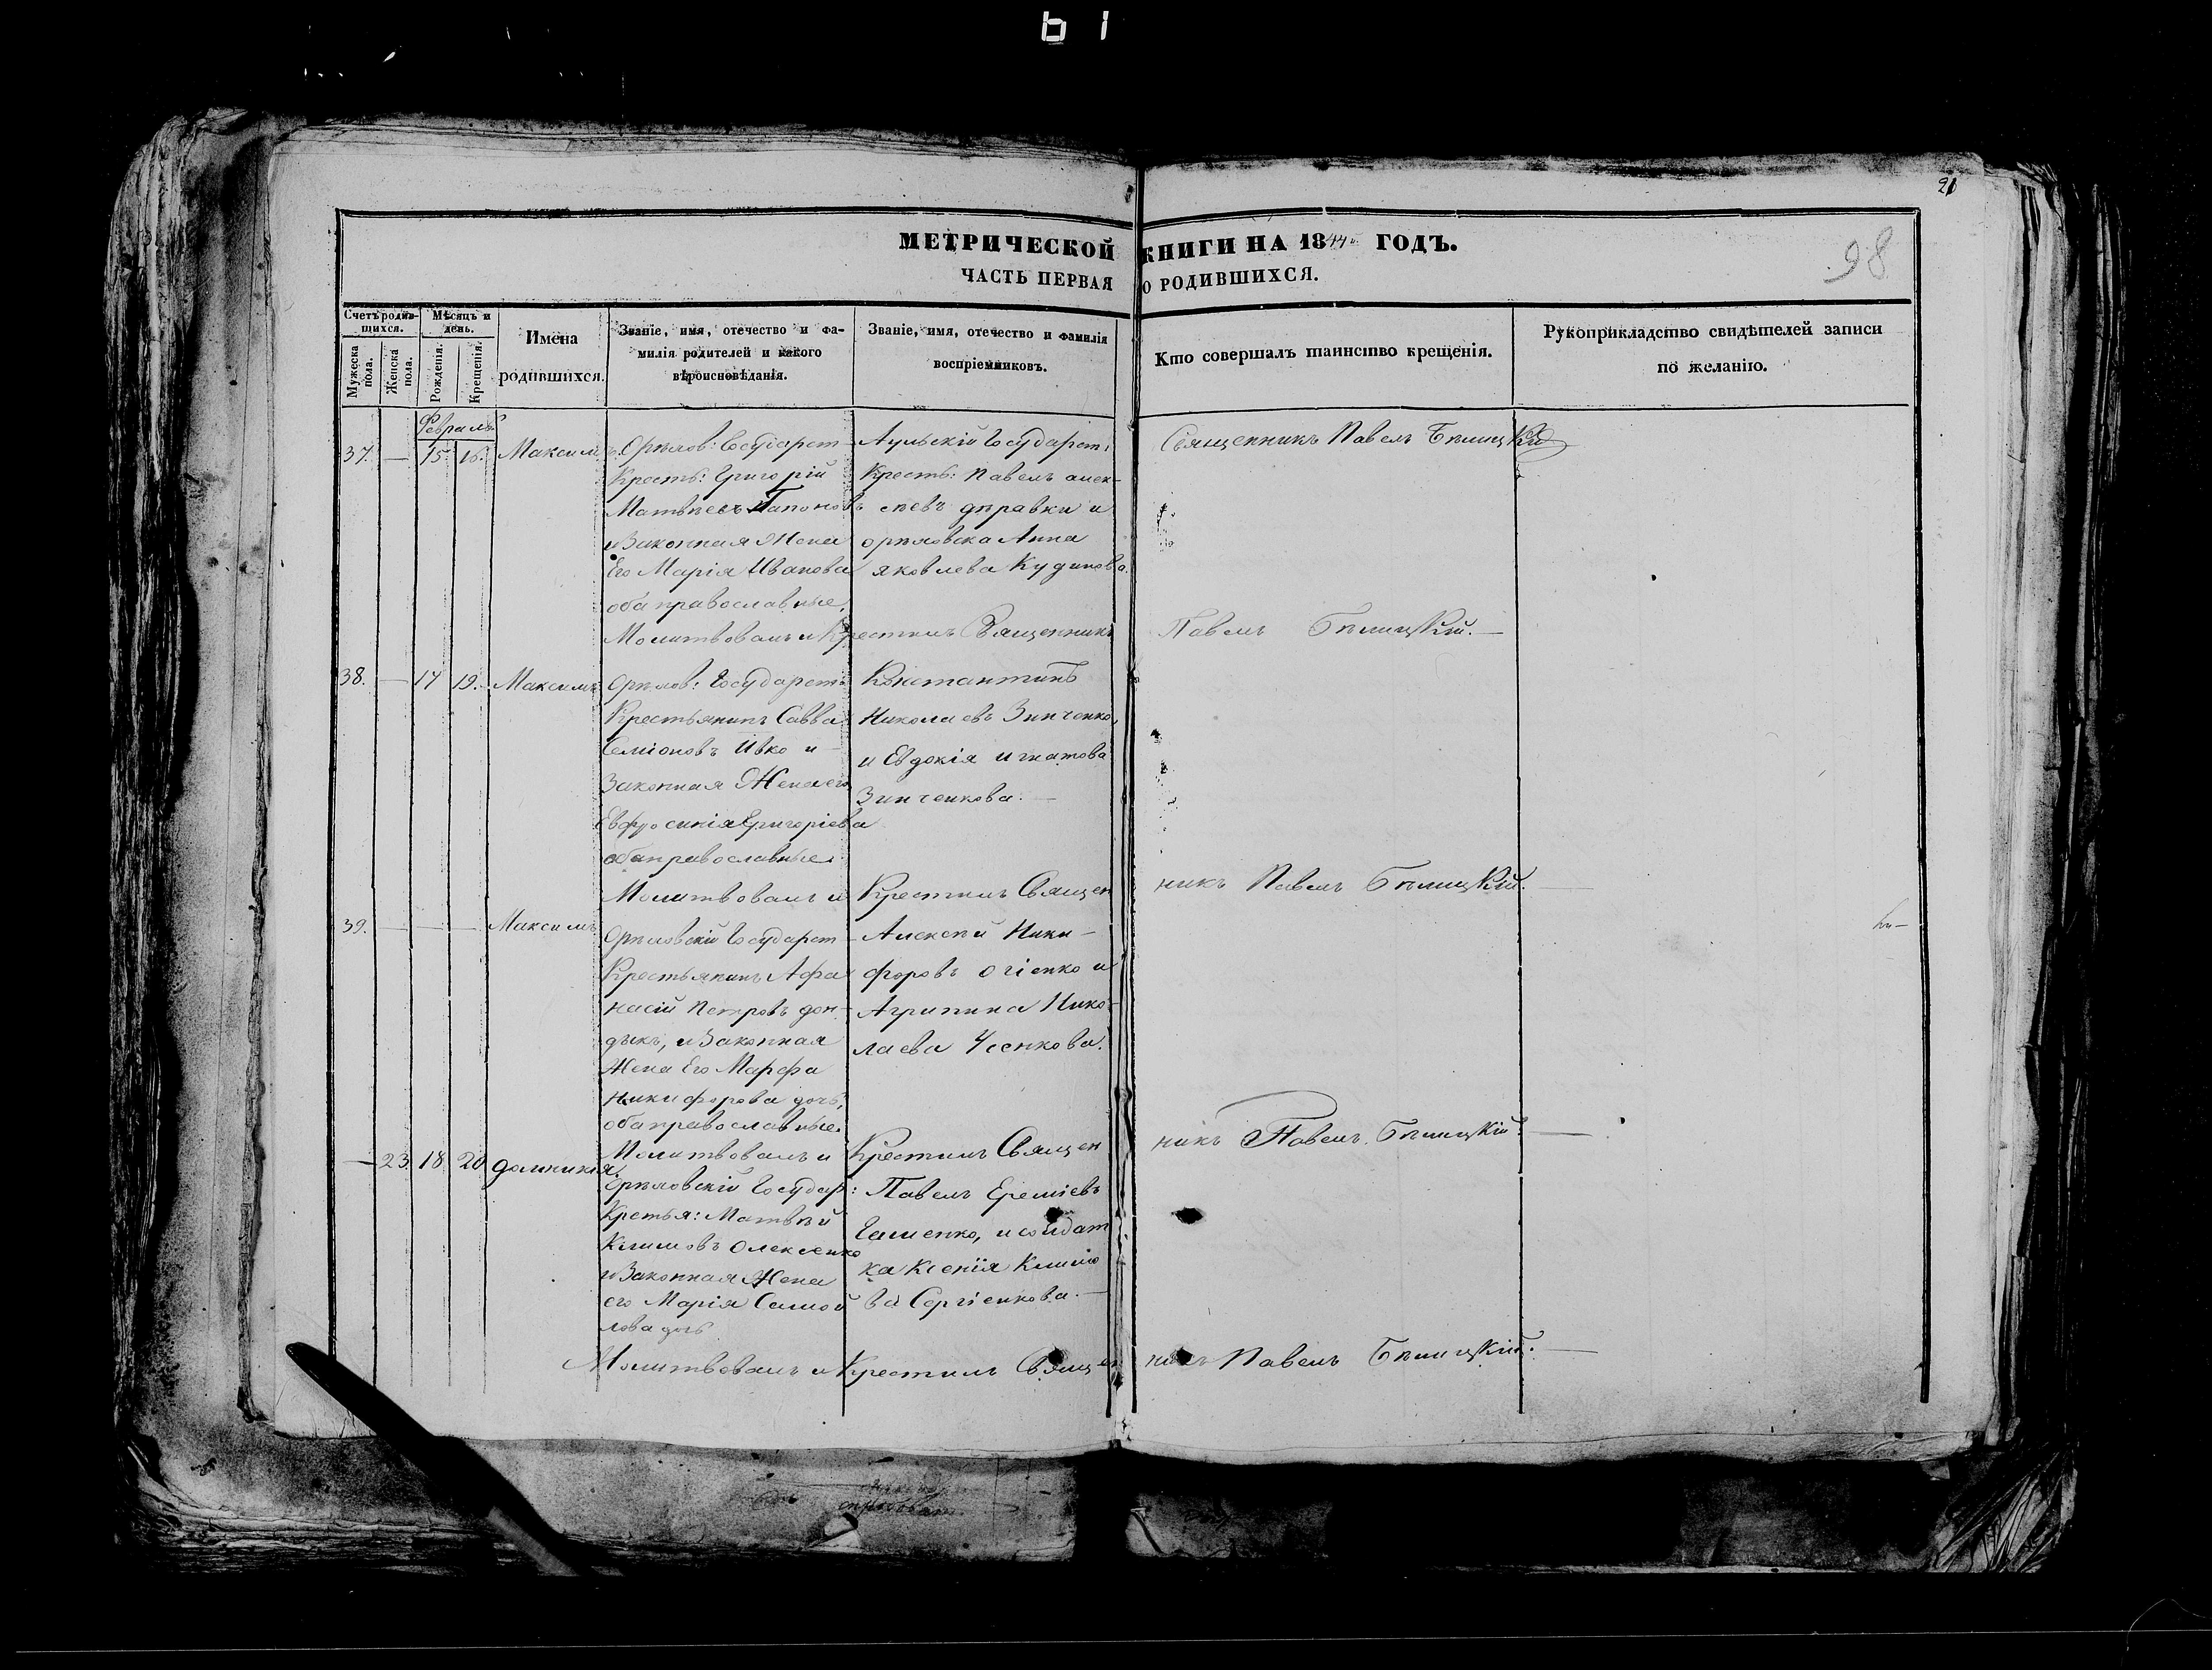 b 1
21
МЕТРИЧЕСКОЙ КНИГИ НА 1844й ГОДЪ.
98
ЧАСТЬ ПЕРВАЯ О РОДИВШИХСЯ.
Счетъ родившихся.
Мужеска пола.
Женска пола.
Мѣсяцъ и день.
Рожденія.
Крещенія.
Имена родившихся.
Званіе, имя, отечество и фамилія родителей и какого вѣроисповѣданія.
Званіе, имя, отечество и фамилія воспріемниковъ.
Кто совершалъ таинство крещенія.
Рукоприкладство свидѣтелей записи по желанію.
Февраль
37. — 15 16. Максимъ
Орѣлов: Государст
Кресть: Григорій
Матвѣевъ Гапоновъ
и Законная Жена
Его Марія Иванова
оба православные,
Аульскій Государст:
Кресть: Павелъ алек-
сѣевъ дѣравки и
орѣловска Анна
яковлева Кудинова.
Священникъ Павелъ Бѣлицкій
Молитвовалъ и Крестилъ Священникъ Павелъ Бѣлицкій. —
38. — 17 19. Максимъ
Орѣлов: Государст:
Крестьянинъ Савва
Семіоновъ Ивко и
Законная Жена его
Евфросинія Григоріева
оба православные.
Константинъ
Николаевъ Зинченко,
и Евдокія игнатова
Зинченкова. —
Молитвовалъ и Крестилъ Священникъ Павелъ Бѣлицкій. —
39. — — — Максимъ
Орѣловскій Государст
Крестьянинъ Афа
насій Петровъ дон-
дыкъ, и Законная
Жена Его Марфа
никифорова дочь,
оба православные.
Алексѣй Ники-
форовъ Огіенко и
Агрипина Нико-
лаева Усенкова.
Молитвовалъ и Крестилъ Священникъ Павелъ Бѣлицкій. —
— 23. 18 20 домникія
Орѣловскій Государ:
Кретья: Матвѣй
Климовъ Олексенко
и Законная Жена
его Марія Самой
лова дочь
Павелъ Ереміевъ
и солдат
ка Ксенія Климо
ва Сергіенкова. —
Молитвовалъ и Крестилъ Священникъ Павелъ Бѣлицкій. —